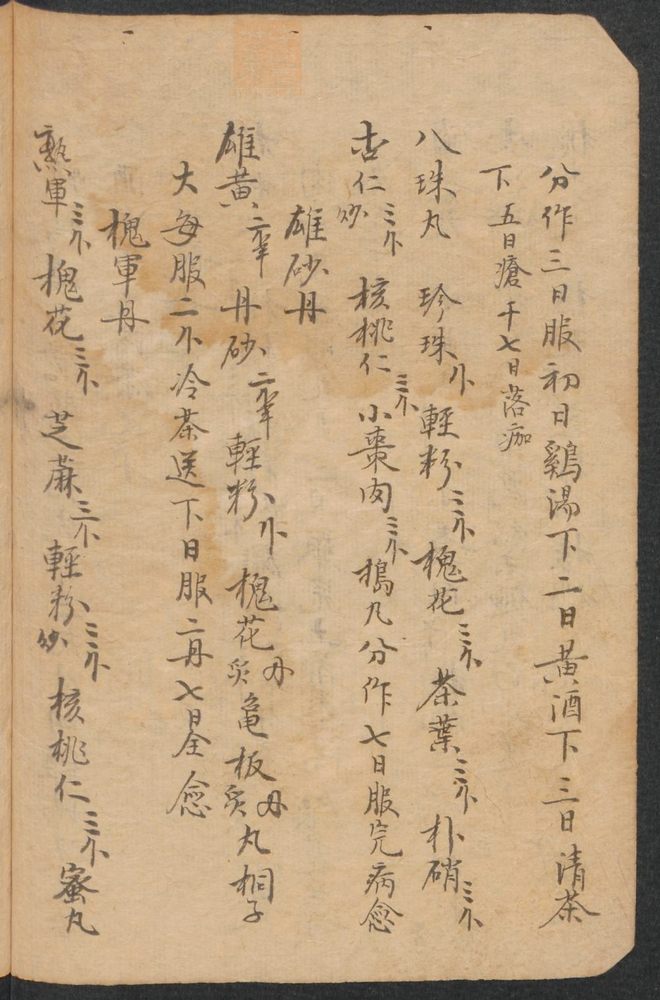 分作三日服初日鷄湯下二日黃酒下三日清茶
下五日瘡干七日落痂
八珠丸 珍珠 輕粉三 槐花三 茶葉三 朴硝三
杏仁炒三 核桃仁三 小棗肉三 搗丸分作七日服完病愈
雄砂丹
雄黃 丹砂 輕粉 槐花炙 龜板炙 丸桐子
大每服二 冷茶送下日服二 七日全愈
槐軍丹
熟軍三 槐花三 芝蔴三 輕粉炒三 核桃仁三 蜜丸